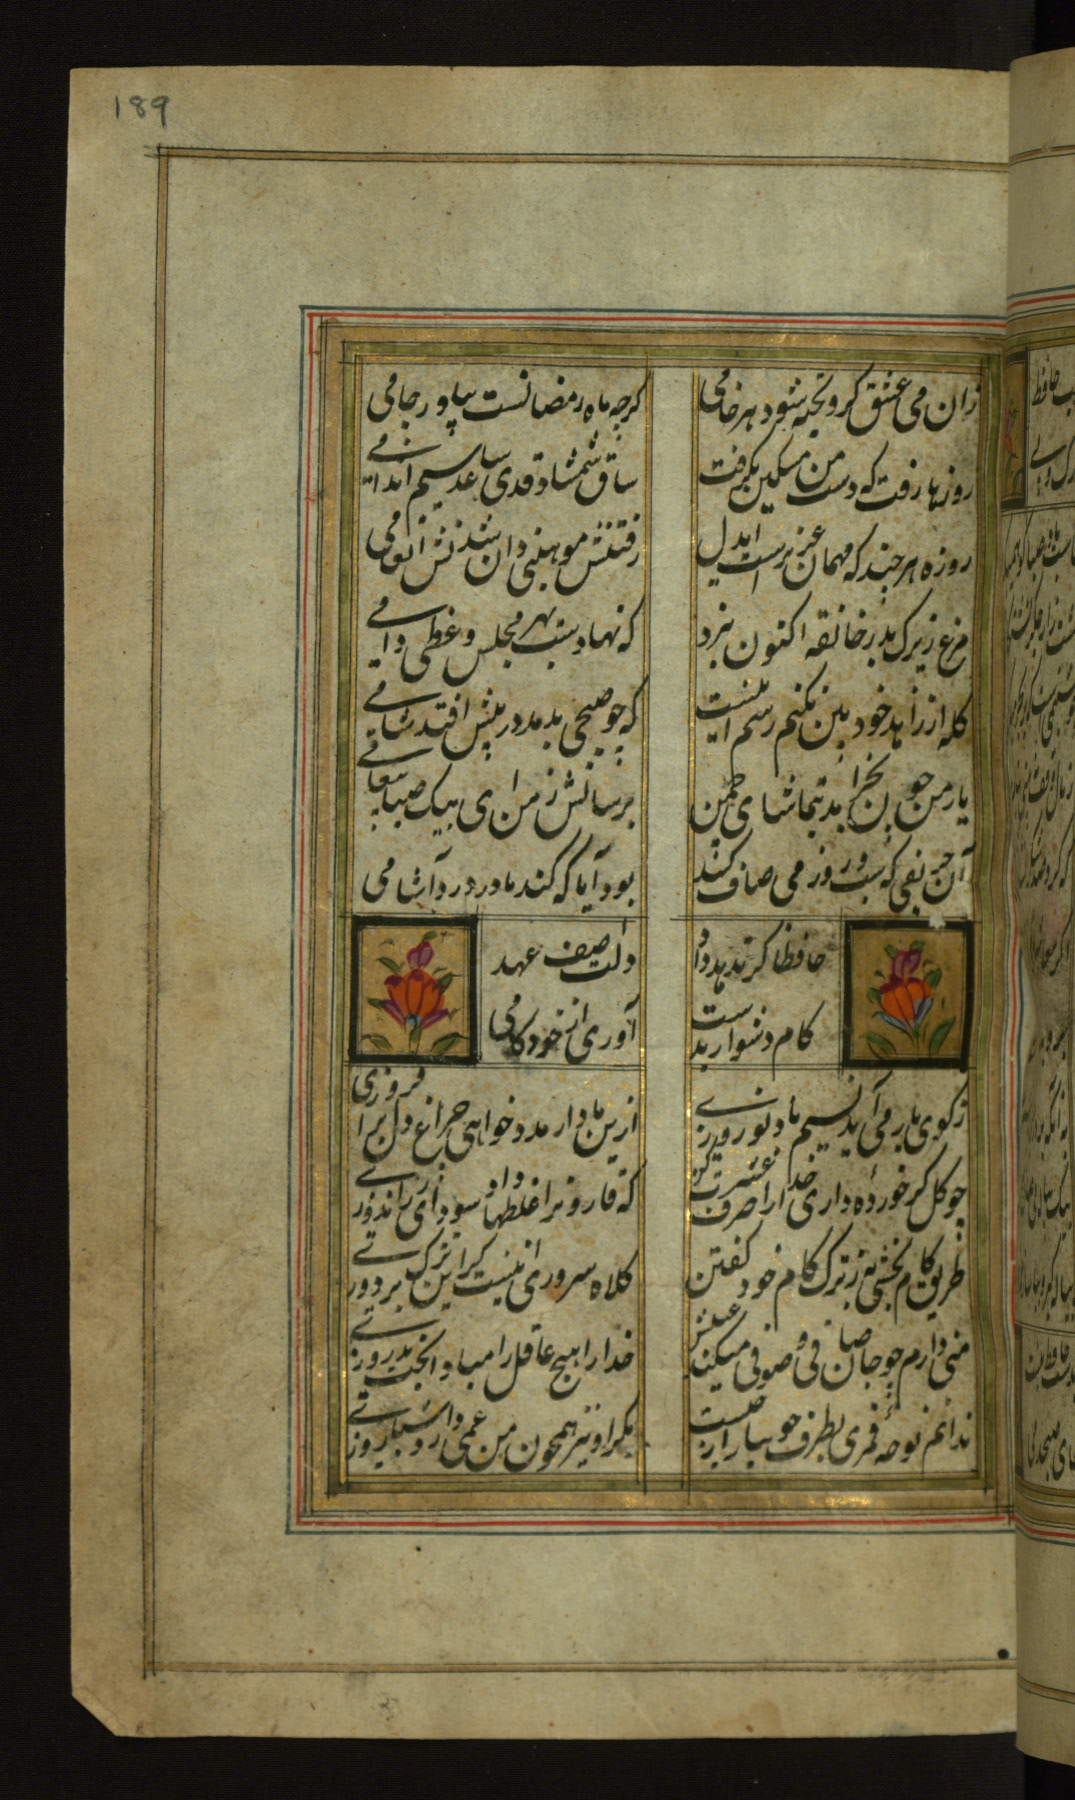 189
زان می عشق کزو پخته شود هر خامی
گرچه ماه رمضانست بیاور جامی
روزها رفت که دست من مسکین نگرفت
ساق شمشاد قدی ساعد سیم اندامی
روزه هر چند که مهمان عزیزست ایدل
رفتنش موهبتی دان شدنش انعامی
مرغ زیرک بدر خانقه اکنون نپرد
که نهادست بهر مجلس وعظی دامی
گله از زاهد خودبین نکنم رسم اینست
که چو صبحی بدمد در پیش افتد شامی
یار من چون بخرامد بتماشای چمن
برسانش ز من ای پیک صبا پیغامی
آن حریفی که شب و روز می صاف کشد
بود آیا که کند یاد ز درد آشامی
حافظا گر ندهد داد
دلت آصف عهد
کام دشوار بدست
آوری از خودکامی
ز کوی یار می آید نسیم باد نوروزی
ازین باد ار مدد خواهی چراغ دل برافروزی
چو گل گر خورده داری خدا را صرف عشرت کن
که قارونرا غلطها داد سودای زراندوزی
طریق کام بخشی چیست ترک کام خود گفتن
کلاه سروری آنست کز این ترک بردوزی
میی دارم چو جان صافی و صوفی میکند عیبش
خدایا هیچ عاقل را مبادا بخت بد روزی
ندانم نوحه قمری بطرف جویباران چیست
مگر او نیز همچون من غمی دارد شبانروزی